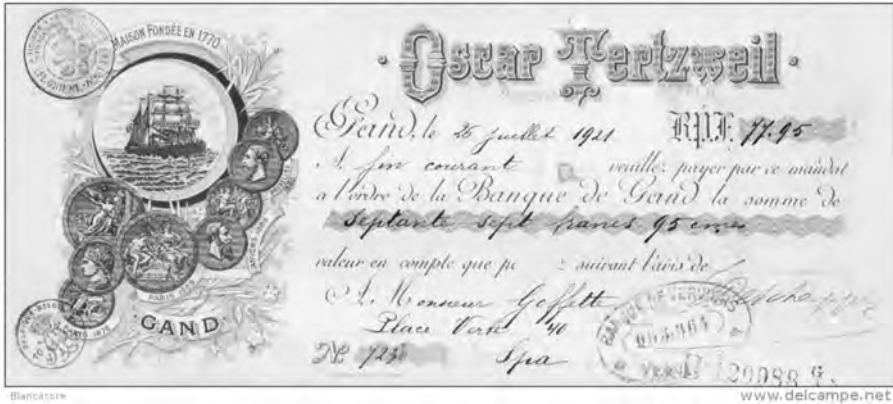 MAISON FONDÉE EN 1770
Oscar Tertzweil
Gand, le 25 juillet 1921 B.P.F. 77.95
A fin courant veuillez payer par ce mandat
a l'ordre de la Banque de Gand la somme de
Septante sept francs 95 cmes
valeur en compte que suivant l'avis de
A Monsieur Goffette
Place Verte 40
No 723 Spa
GAND
PARIS
BANQUE DE VERVIERS
20988 G.
Blancastre
www.delcampe.net